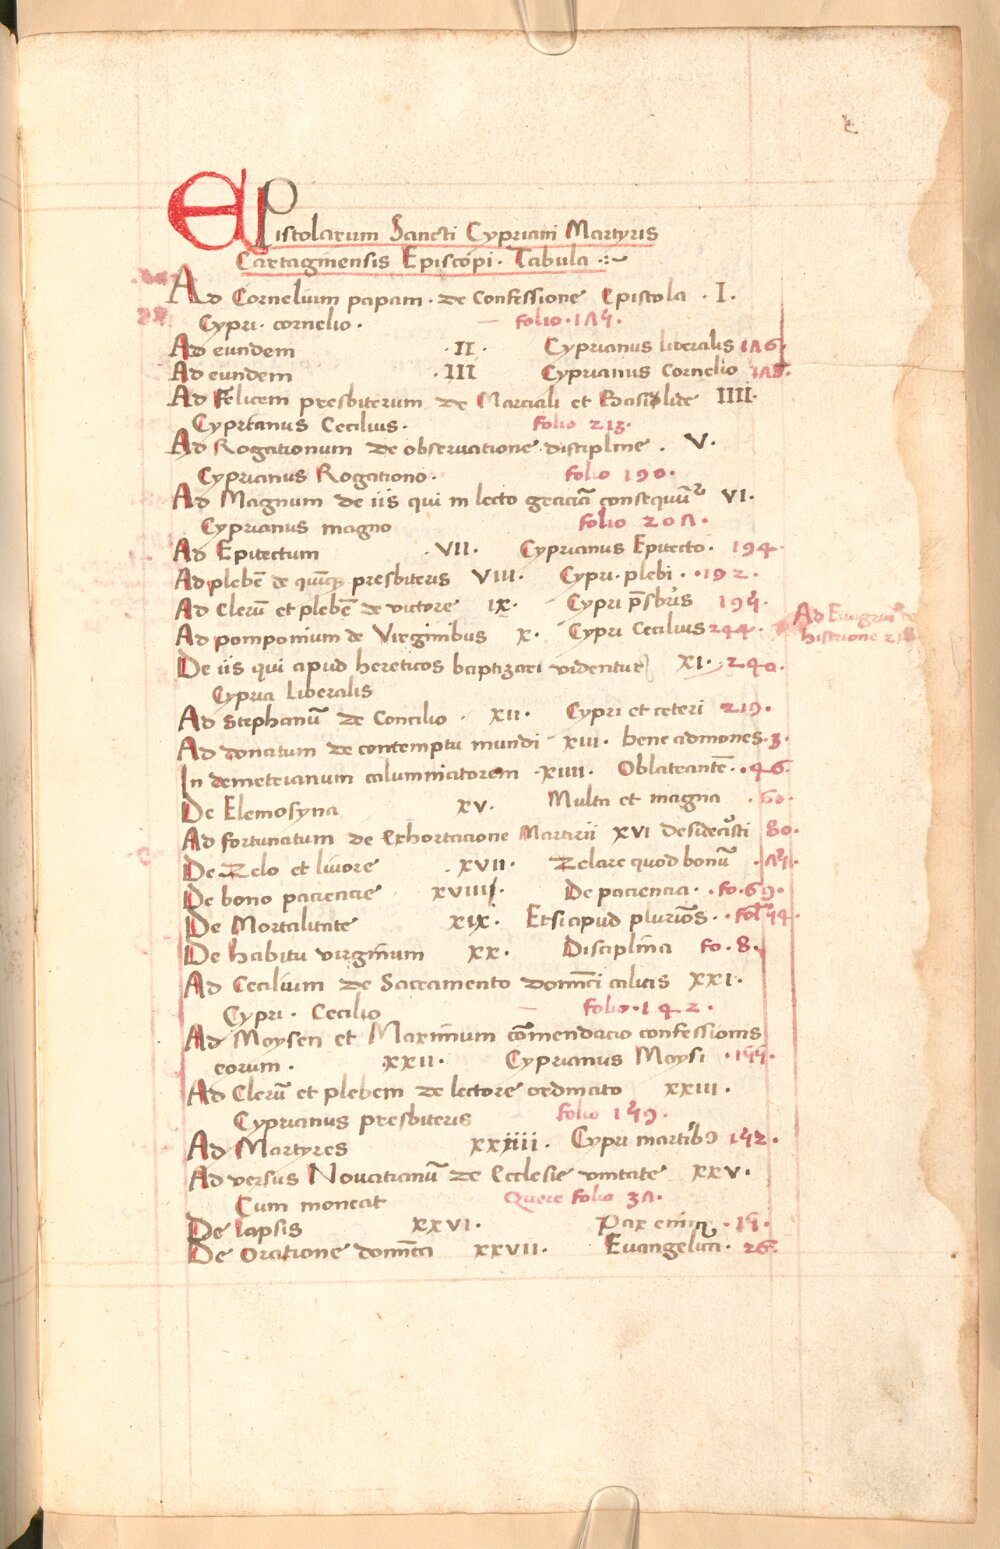 Epistolarum Sancti Cypriani Martyris
Cartaginensis Episcopi · Tabula
Ad Cornelium papam · de Confessione Epistola · I ·
Cypri · cornelio · folio · 1Λ5 ·
Ad eundem · II · Cyprianus liberalis 1Λ6 ·
Ad eundem · III Cyprianus Cornelio
Ad Felicem presbiterum de Marciali et Basilide IIII ·
Cyprianus Cecilius · folio 213 ·
Ad Rogationum de obseruatione discipline · V ·
Cyprianus Rogationo · folio 190 ·
Ad Magnum de iis qui in lecto graciā consequūt VI ·
Cyprianus magno folio 20Λ ·
Ad Epitectum · VII · Cyprianus Epitecto · 194 ·
Ad plebē de presbiteris VIII · Cypri · plebi · 192 ·
Ad Clerū et plebē de victore IX · Cypri p̄sbris 195 ·
Ad pomponium de Virginibus X · Cypri Cecilius 244 ·
Ad
histrione
De iis qui apud hereticos baptizari videntur XI · 240 ·
Cypria Liberalis
Ad Stephanū de Concilio · XII · Cypri et ceteri 219 ·
Ad donatum de contemptu mundi XIII · bene admones · 3 ·
In demetrianum calumniatorem · XIIII · Oblatrantē · 46 ·
De Elemosyna XV · Multa et magna · 60 ·
Ad fortunatum de exhortacione Martirii XVI desiderasti 80 ·
De Zelo et liuore · XVII · Zelare quod bonū
De bono paciencie XVIII · De paciencia · fo · 69 ·
De Mortalitate XIX · Etsi apud plurios · fol 54 ·
De habitu virginum XX · Disciplina fo · 8 ·
Ad Cecilium de Sacramento domīci calicis XXI ·
Cypri · Cecilio folio · 142 ·
Ad Moysen et Maximum cōmendacio confessionis
eorum · XXII · Cyprianus Moysi · 155 ·
Ad Clerū et plebem de lectore ordinato XXIII ·
Cyprianus presbiteris folio 159 ·
Ad Martyres XXIIII · Cypri martibꝯ 152 ·
Ad versus Nouatianū de Ecclesie vnitate XXV ·
Cum moneat Quere folio 3Λ ·
De lapsis XXVI · Pax · 15 ·
De Oratione domīca XXVII · Euangelica · 26 ·